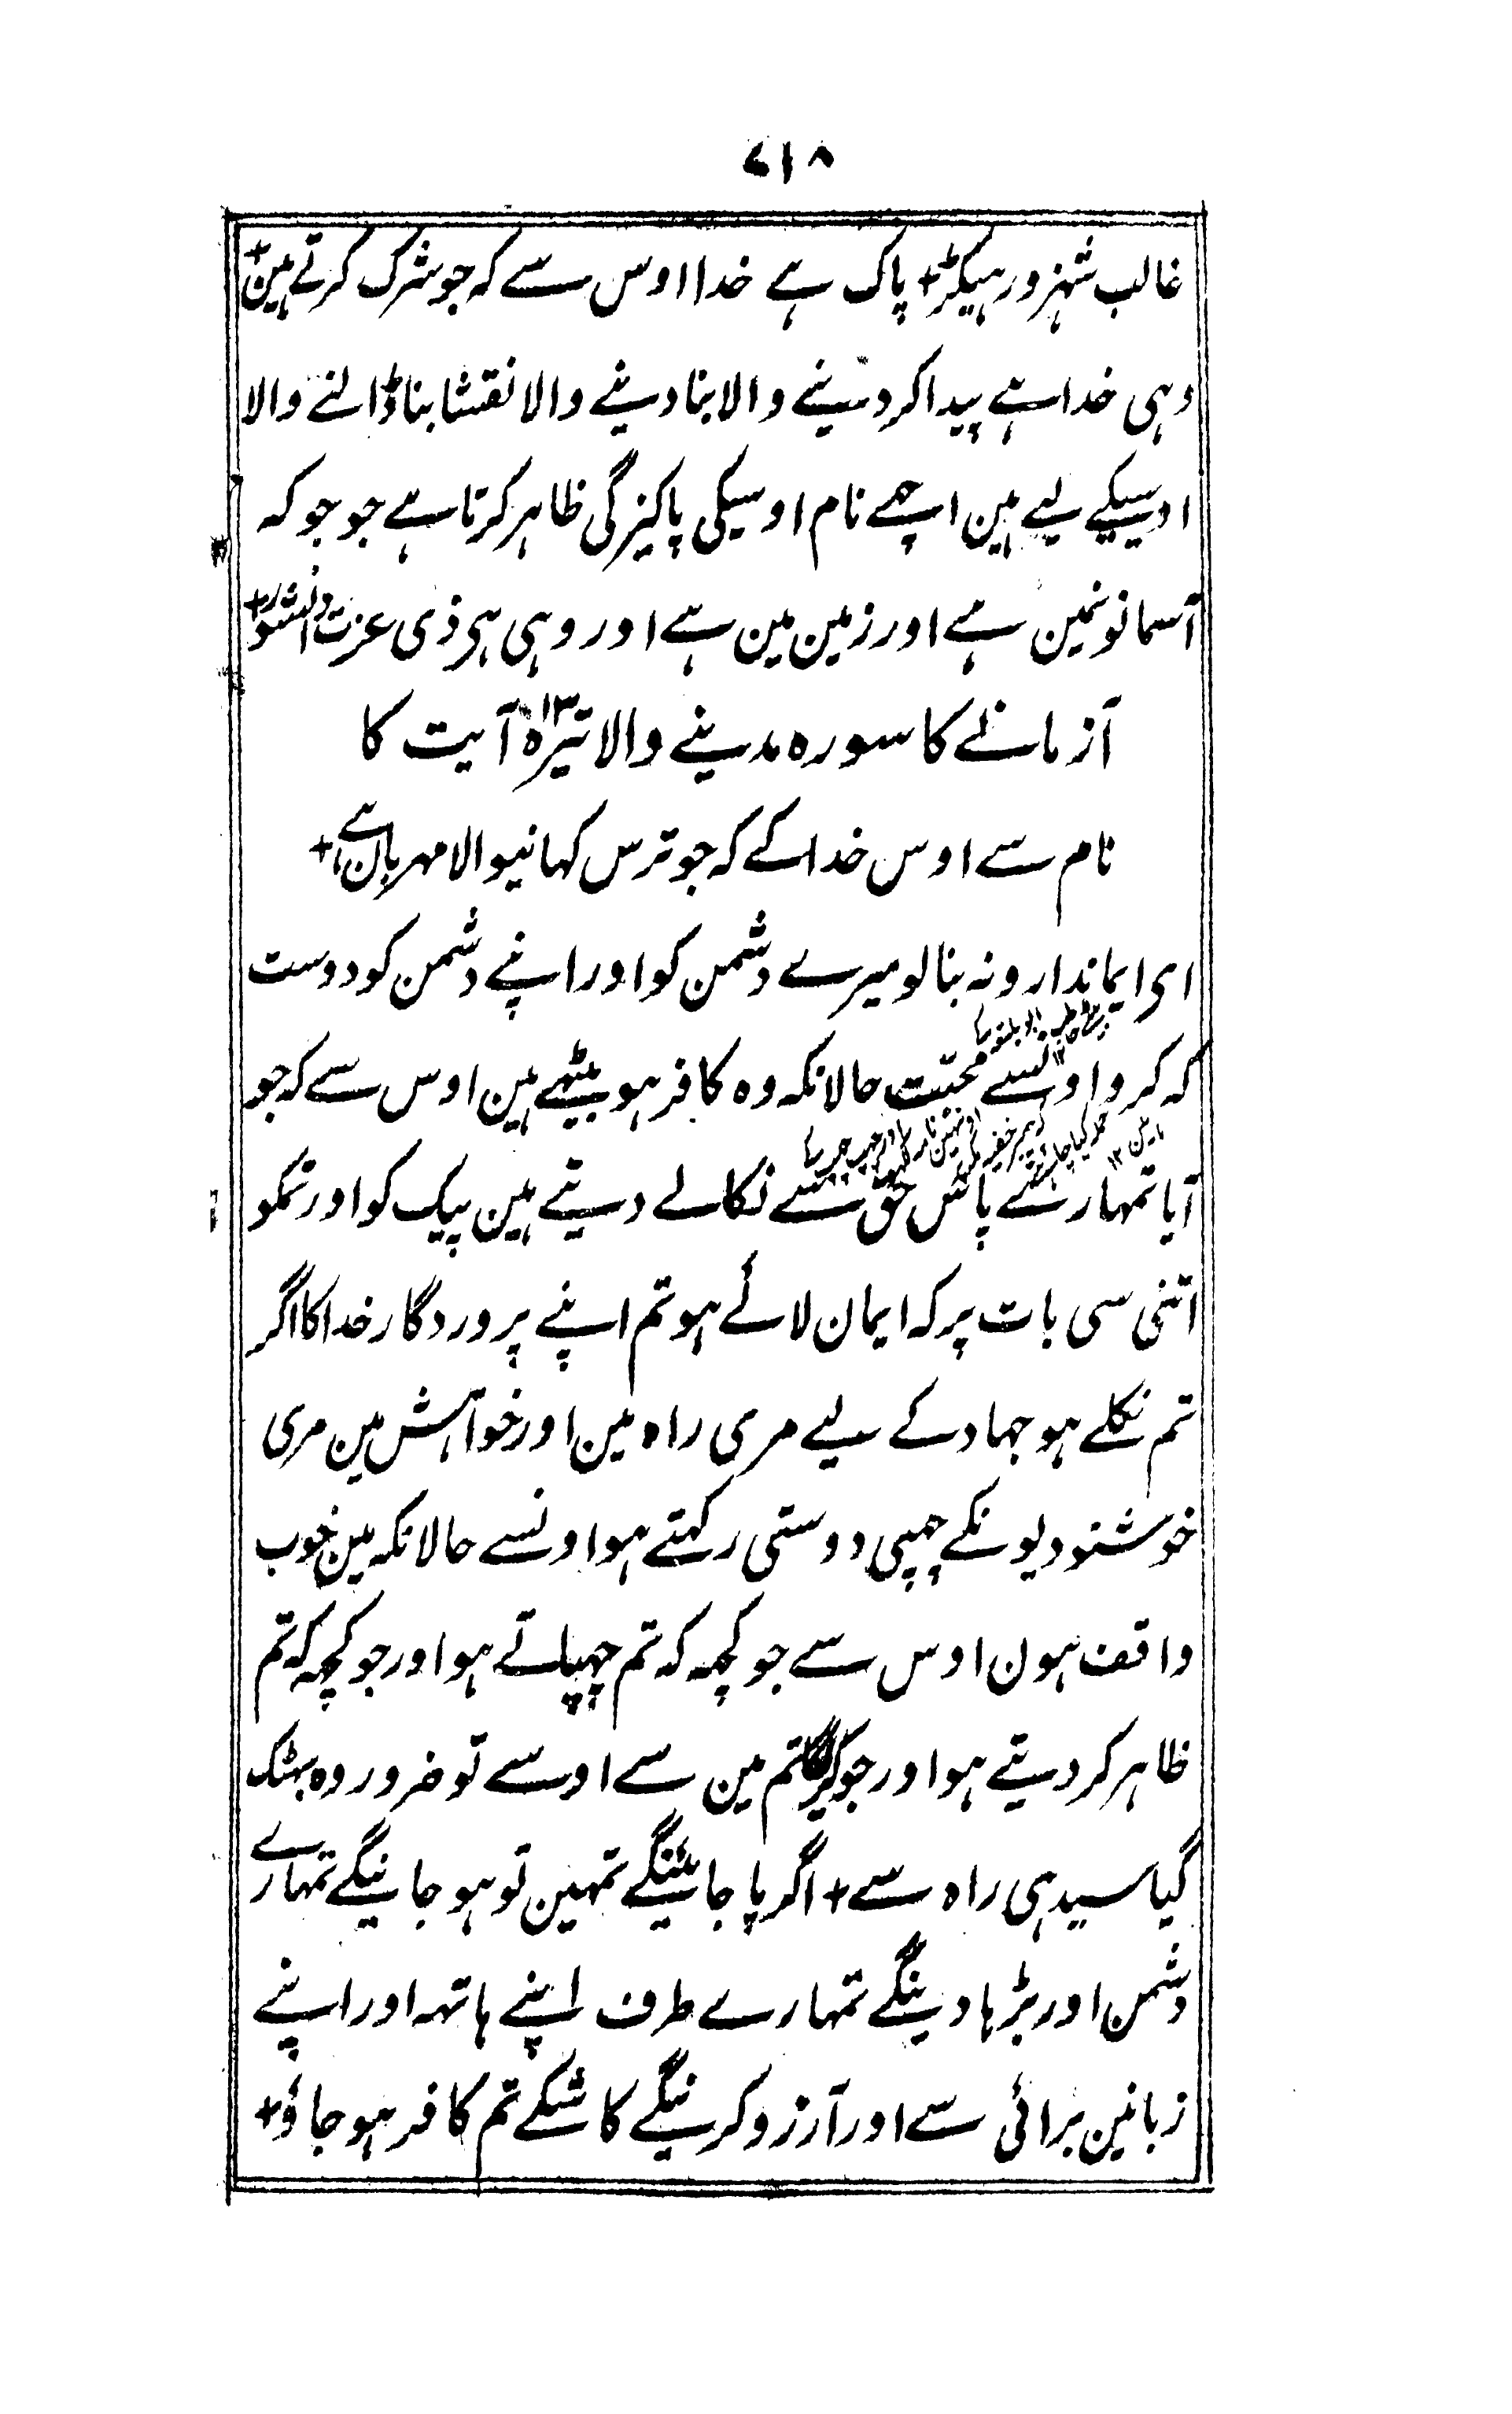 ۷۱۸
غالب شہزور ہیکڑ + پاک ہے خدا اوس سے کہ جو شرک کرتے ہین +
وہی خدا ہے پیدا کر دینے والا بنا دینے والا نقشا بنا ڈالنے والا
اوسیکے لیے ہین اچھے نام اوسیکی پاکیزگی ظاہر کرتا ہے جو جو کہ
آسمانونمین ہے اور زمین مین ہے اور وہی ہی ذی عزت دانشور +
آزمانے کا سورہ مدینے والا تیرہ ۱۳ آیت کا
نام سے اوس خدا کے کہ جو ترس کہانیوالا مہربان ہے +
ای ایماندارو نہ بنا لو میرے دشمن کو اور اپنے دشمن کو دوست
کہ کرو اونسے محبّت حالانکہ وہ کافر ہو بیٹھے ہین اوس سے کہ جو
آیا تمہارے پاس حق سے نکالے دیتے ہین پیک کو اور تمکو
اتنی سی بات پر کہ ایمان لائے ہو تم اپنے پروردگار خدا کا اگر
تم نکلے ہو جہاد کے لیے مری راہ مین اور خواہش مین مری
خوشنودیونکے چھپی دوستی رکہتے ہو اونسے حالانکہ مین خوب
واقف ہون اوس سے جو کچہ کہ تم چہپاتے ہو اور جو کچہ کہ تم
ظاہر کر دیتے ہو اور جو کریگا تم مین سے اوسے تو ضرور وہ بہٹک
گیا سیدہی راہ سے + اگر پا جائینگے تمہین تو ہو جائینگے تمہارے
دشمن اور بڑہا دینگے تمہارے طرف اپنے ہاتہہ اور اپنے
زبانین برائی سے اور آرزو کرینگے کاشکے تم کافر ہو جاؤ +